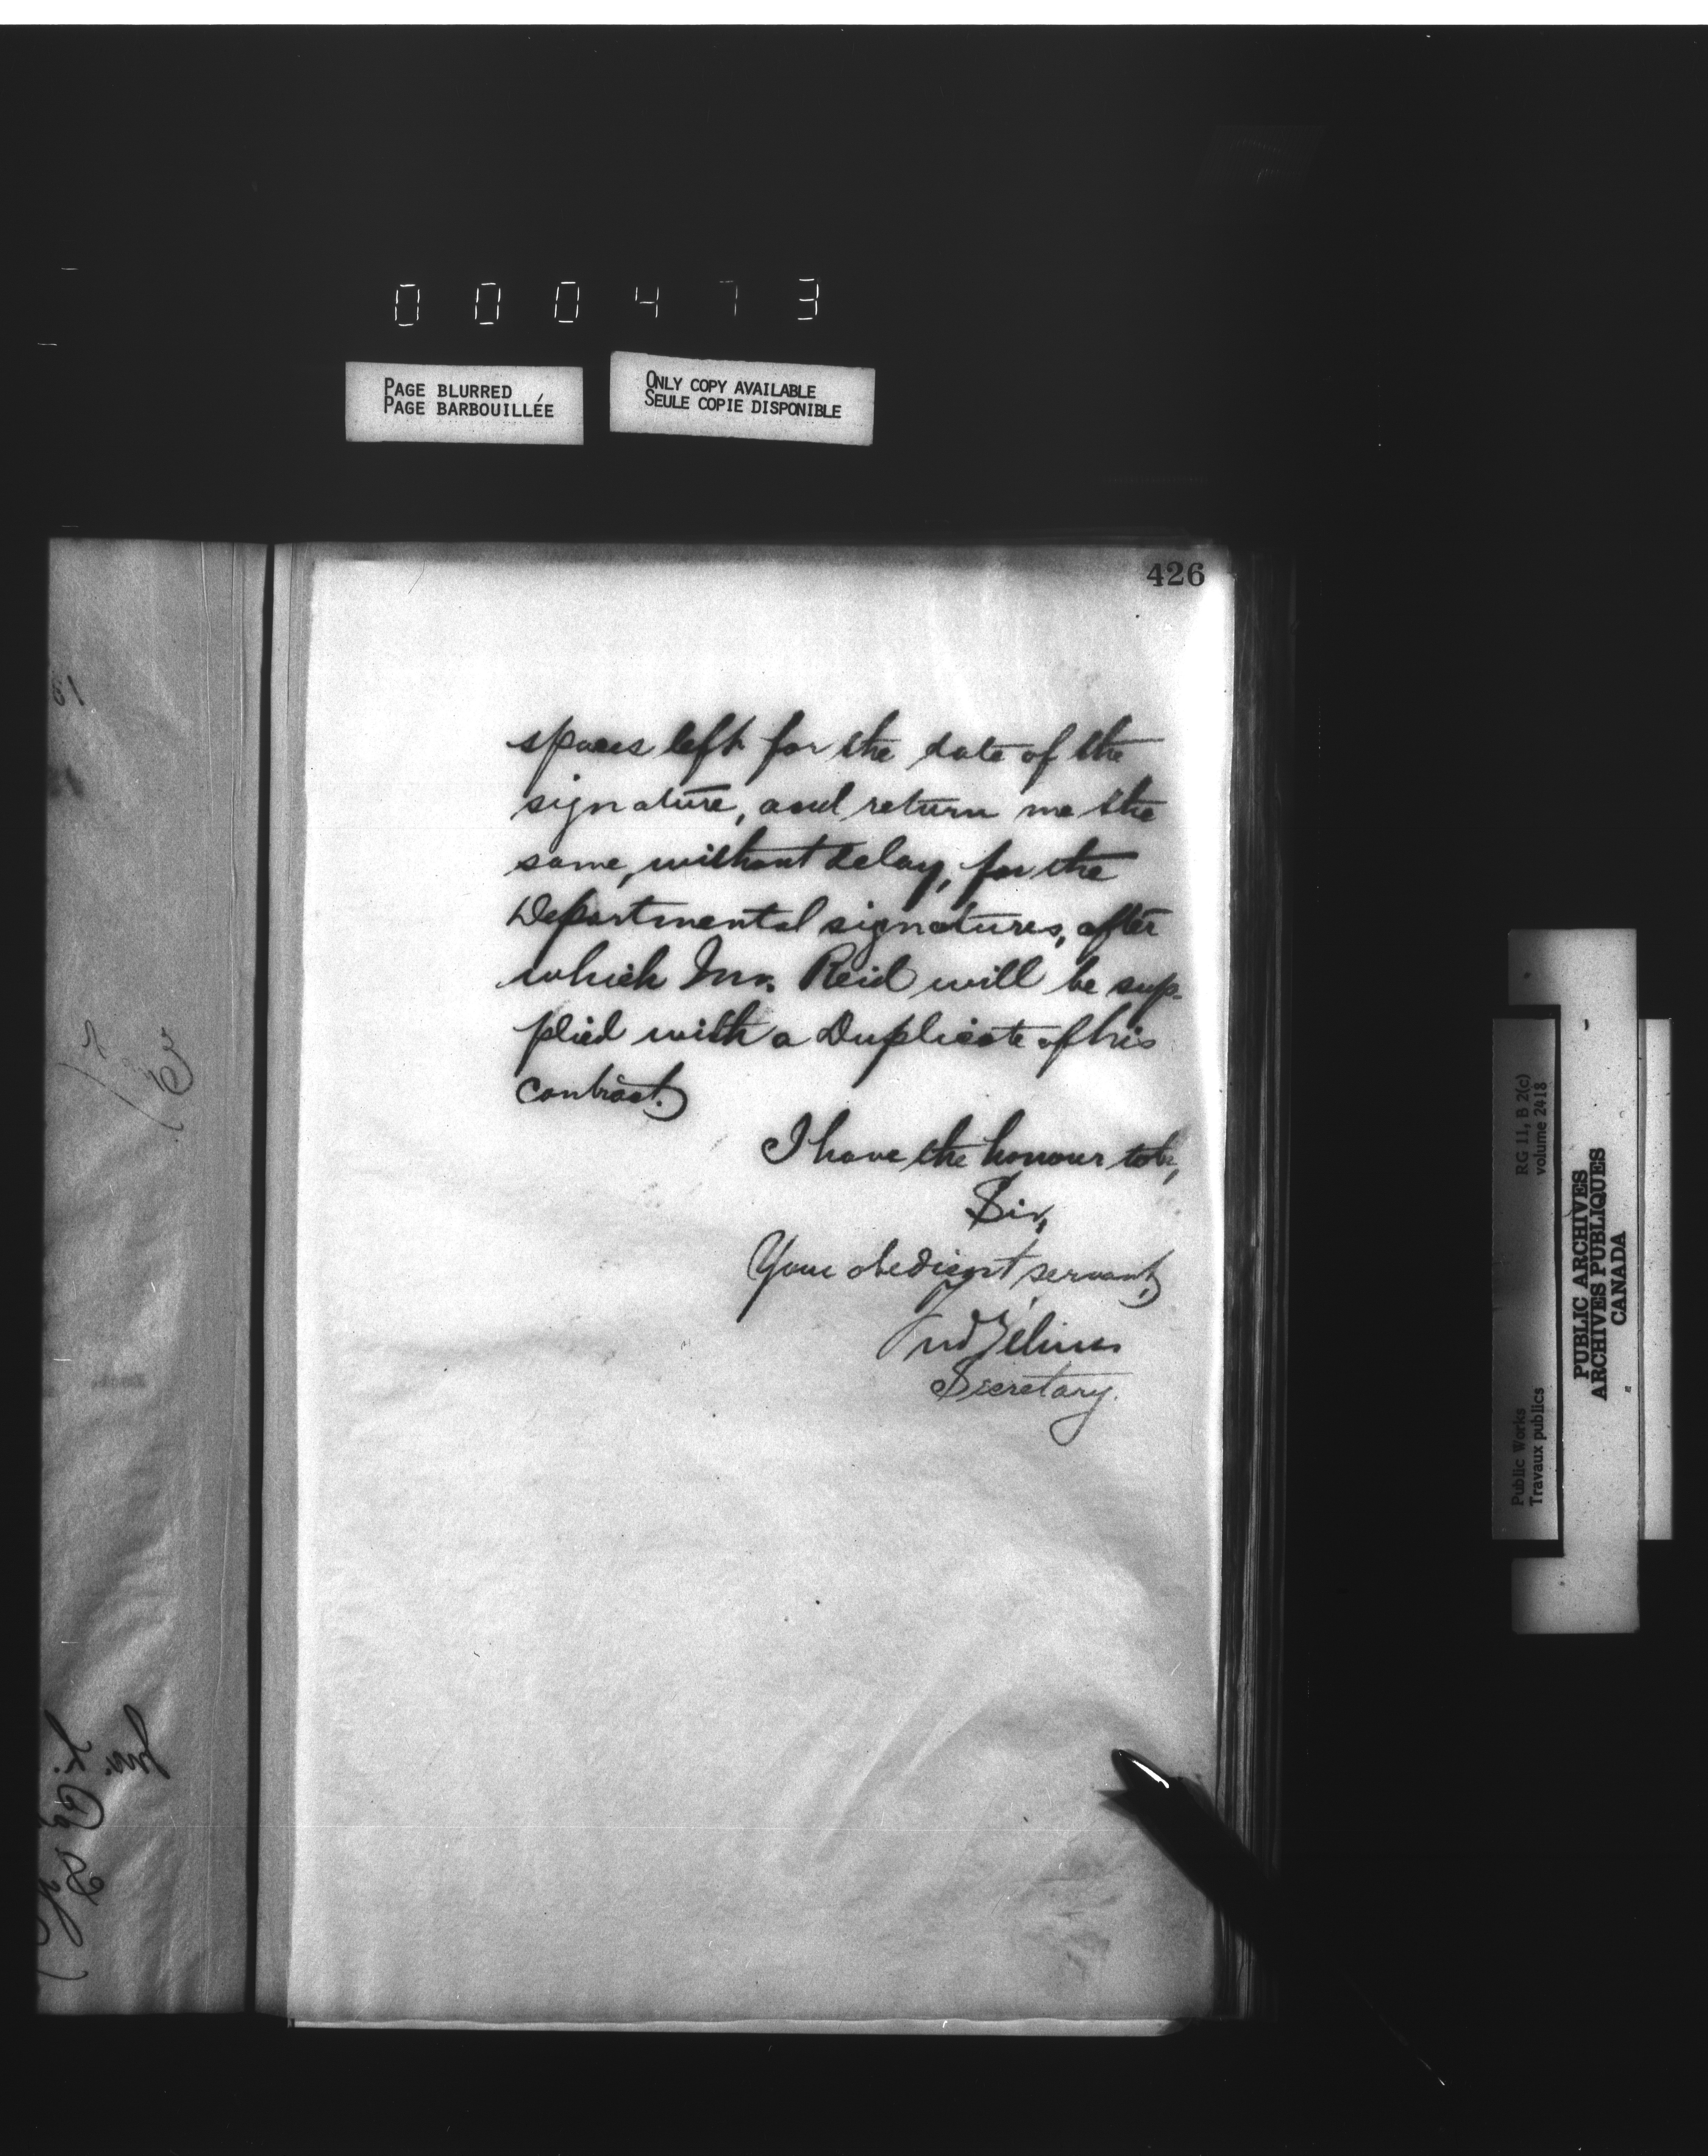 000473
PAGE BLURRED
PAGE BARBOUILLÉE
ONLY COPY AVAILABLE
SEULE COPIE DISPONIBLE
426
spaces left for the date of the
signature, and return me the
same, without delay, for the
Departmental signatures, after
which Mr. Reid will be sup-
plied with a Duplicate of his
contract.
I have the honour to be,
Sir,
Your obedient servant,
Secretary.
Public Works
Travaux publics
RG 11, B 2(c)
volume 2418
PUBLIC ARCHIVES
ARCHIVES PUBLIQUES
CANADA